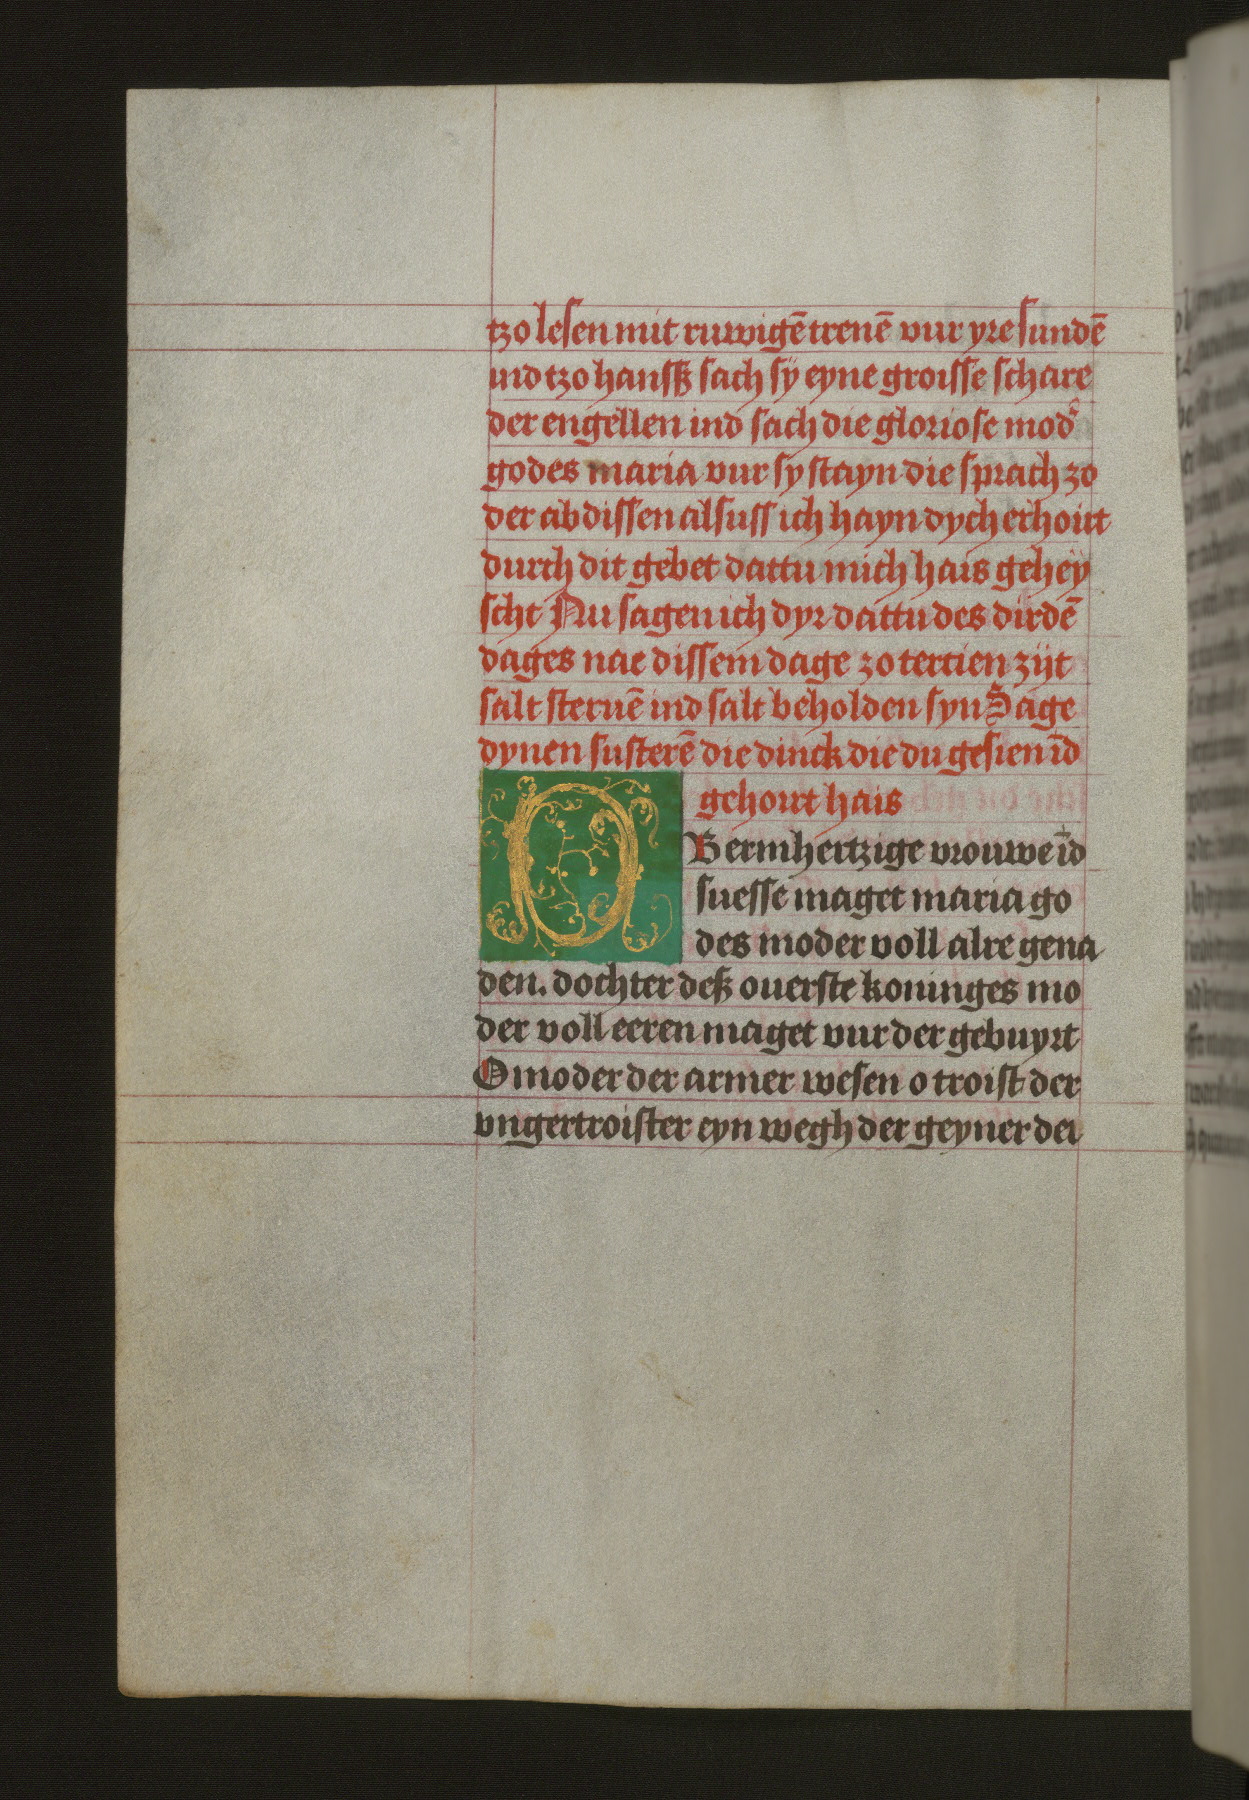 tzo lesen mit ruwigē trenē vur yre sundē
ind tzo hansß sach sÿ eyne groisse schare
der engellen ind sach die gloriose mod᷑
godes maria vur sy stayn die sprach zo
der abdissen alsuss ich hayn dych erhoirt
durch dit gebet dattu mich hais gehey
scht Nu sagen ich dyr dattu des dirdē
dages nae dissem dage zo tertien zijt
salt steruē ind salt beholden syn Sage
dynen susterē die dinck die du gesien īd
gehoirt hais
O Bermhertzige vrouwe īd
suesse maget maria go
des moder voll alre gena
den. dochter deß ouerste koninges mo
der voll eeren maget vur der gebuyrt
O moder der armer wesen o troist der
vngertroister eyn wegh der geyner dei